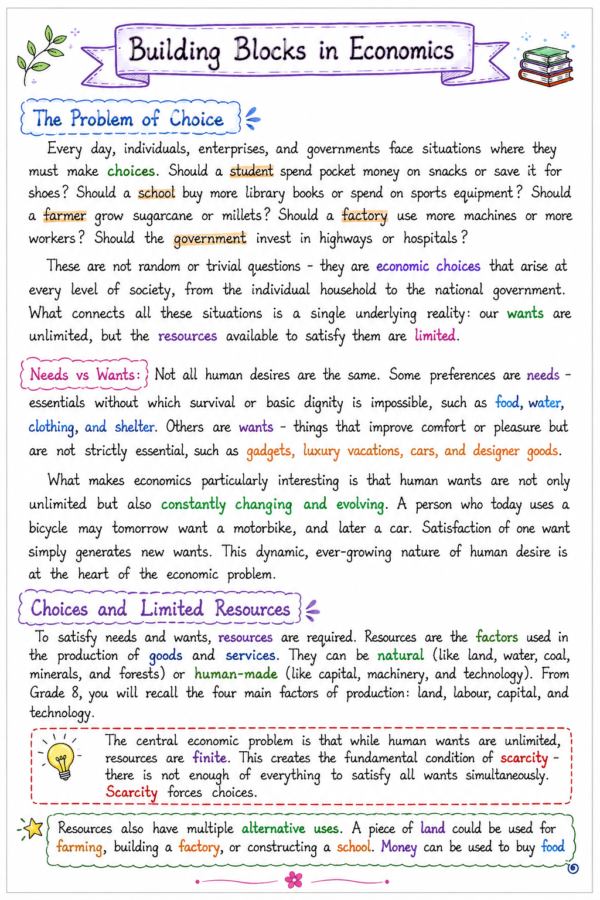 Building Blocks in Economics
The Problem of Choice
Every day, individuals, enterprises, and governments face situations where they
must make choices. Should a student spend pocket money on snacks or save it for
shoes? Should a school buy more library books or spend on sports equipment? Should
a farmer grow sugarcane or millets? Should a factory use more machines or more
workers? Should the government invest in highways or hospitals?
These are not random or trivial questions - they are economic choices that arise at
every level of society, from the individual household to the national government.
What connects all these situations is a single underlying reality: our wants are
unlimited, but the resources available to satisfy them are limited.
Needs vs Wants: Not all human desires are the same. Some preferences are needs -
essentials without which survival or basic dignity is impossible, such as food, water,
clothing, and shelter. Others are wants - things that improve comfort or pleasure but
are not strictly essential, such as gadgets, luxury vacations, cars, and designer goods.
What makes economics particularly interesting is that human wants are not only
unlimited but also constantly changing and evolving. A person who today uses a
bicycle may tomorrow want a motorbike, and later a car. Satisfaction of one want
simply generates new wants. This dynamic, ever-growing nature of human desire is
at the heart of the economic problem.
Choices and Limited Resources
To satisfy needs and wants, resources are required. Resources are the factors used in
the production of goods and services. They can be natural (like land, water, coal,
minerals, and forests) or human-made (like capital, machinery, and technology). From
Grade 8, you will recall the four main factors of production: land, labour, capital, and
technology.
The central economic problem is that while human wants are unlimited,
resources are finite. This creates the fundamental condition of scarcity -
there is not enough of everything to satisfy all wants simultaneously.
Scarcity forces choices.
Resources also have multiple alternative uses. A piece of land could be used for
farming, building a factory, or constructing a school. Money can be used to buy food